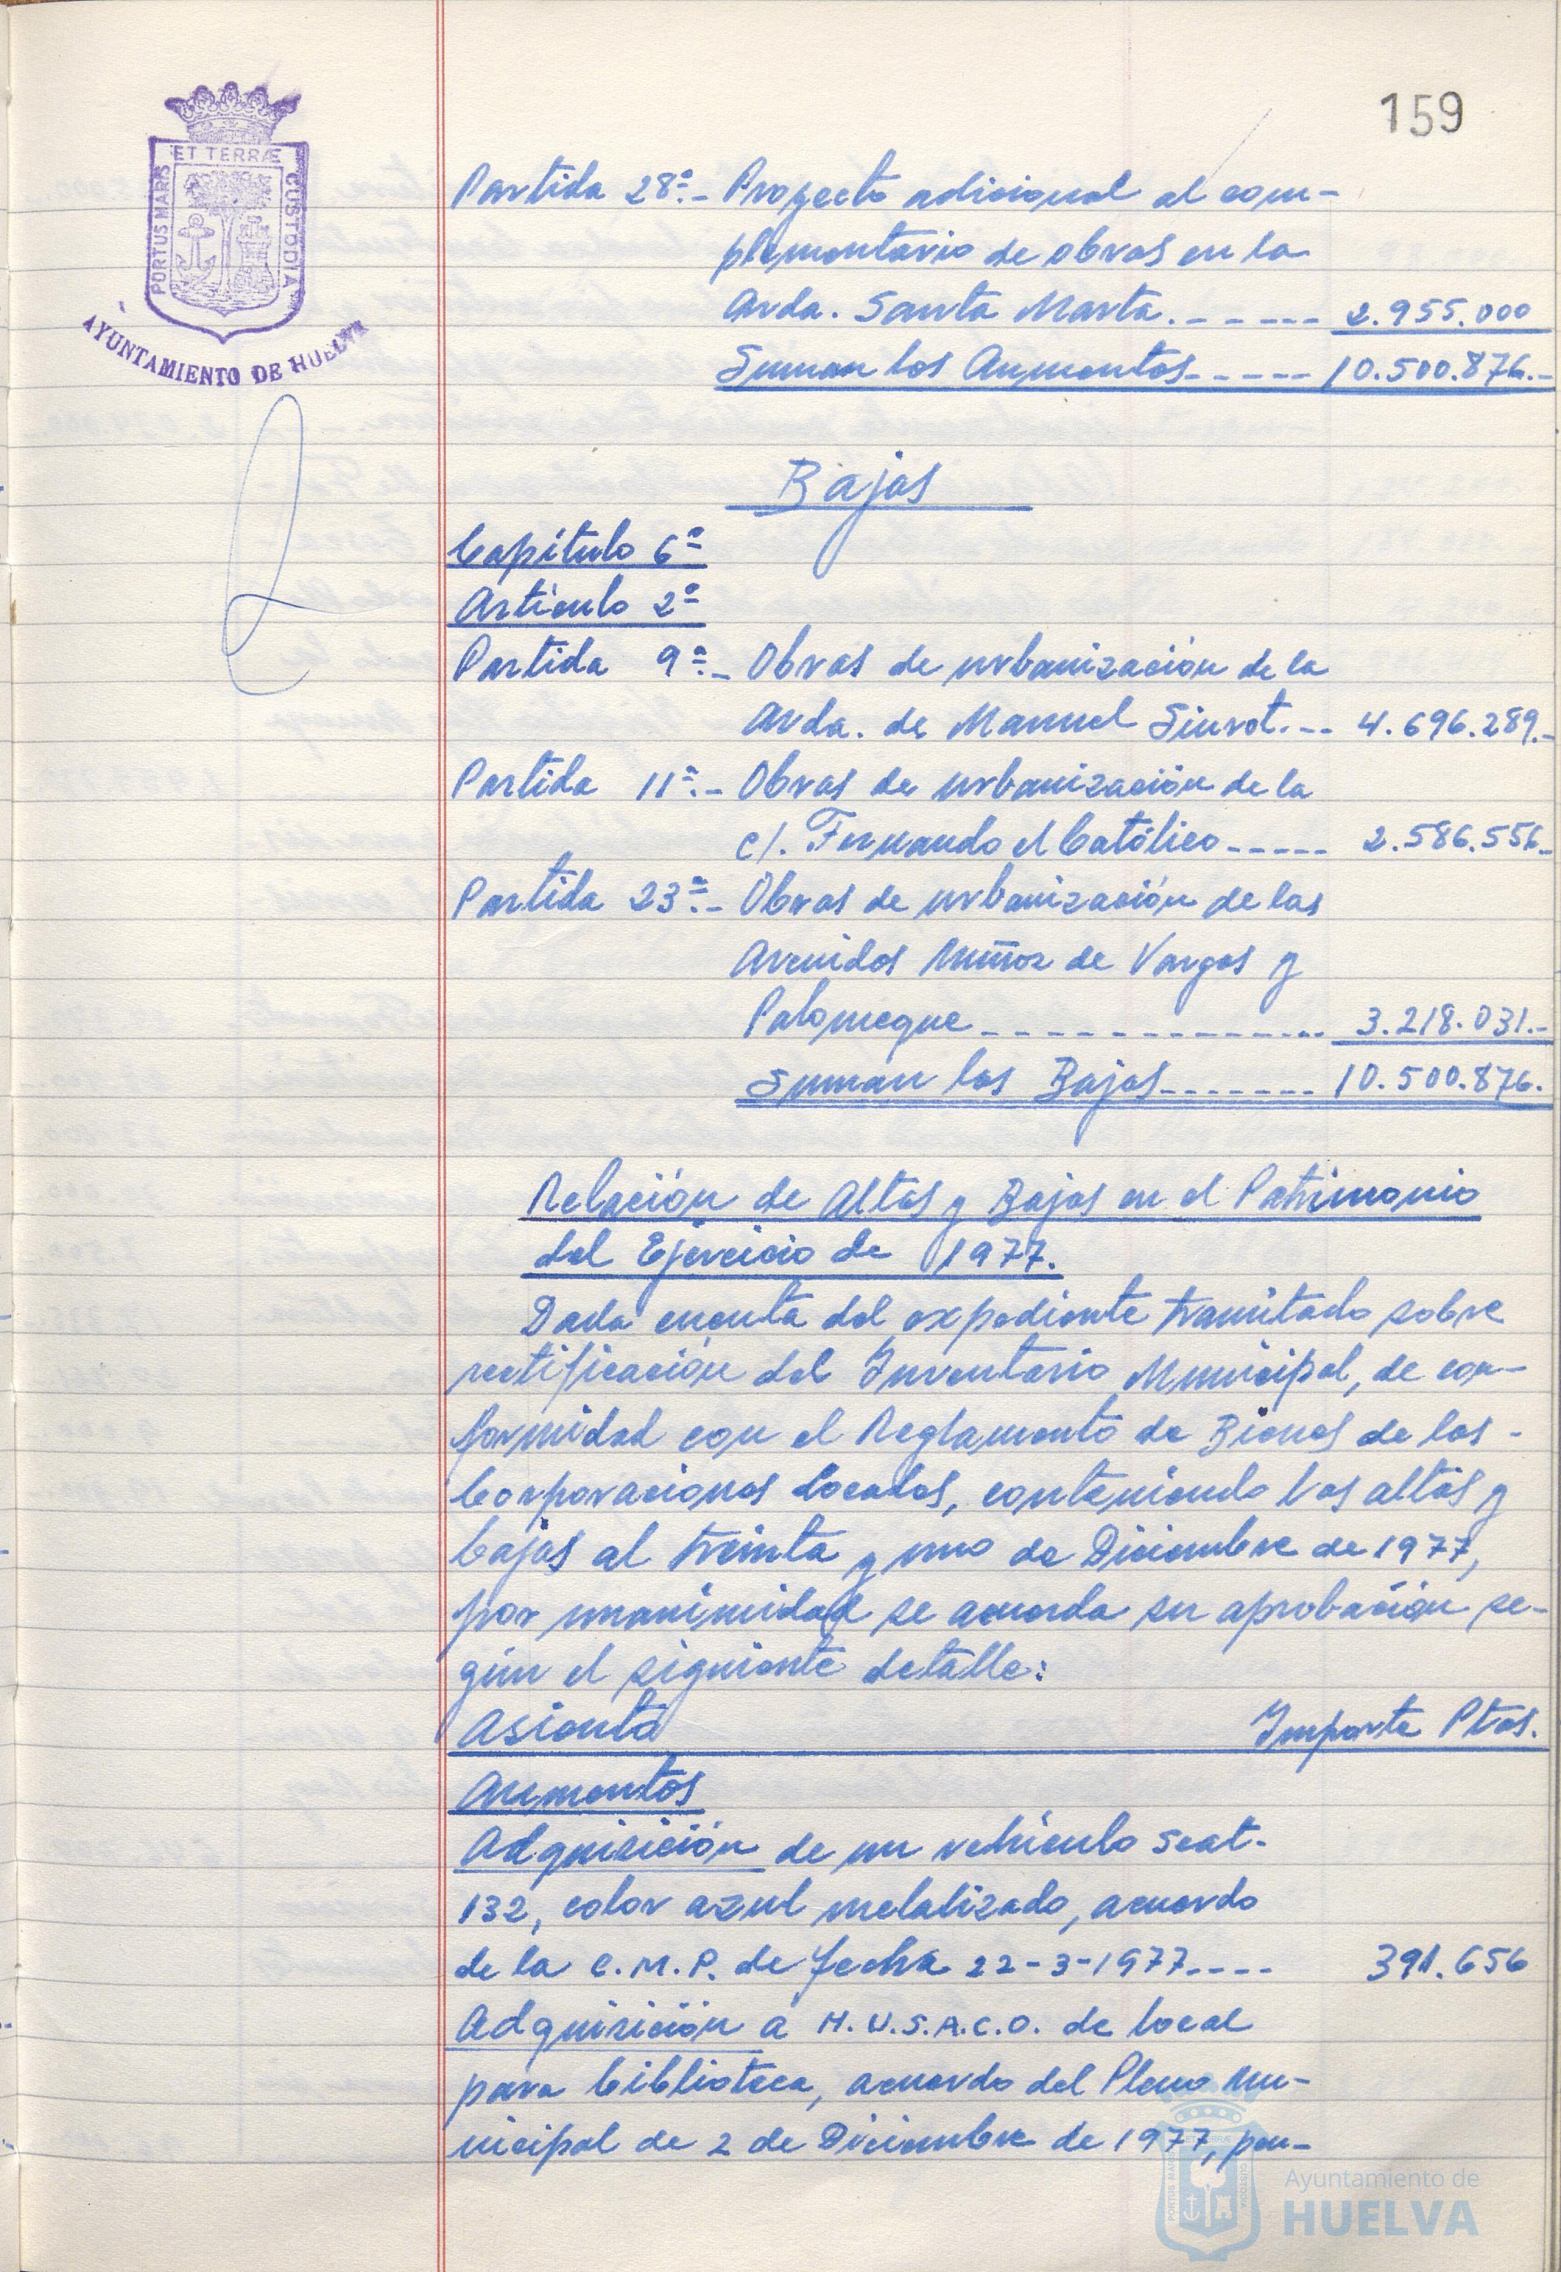 159
ET TERRÆ
PORTUS MARIS
CUSTODIA
AYUNTAMIENTO DE HUELVA
Partida 28ª.- Proyecto adicional al com-
plementario de obras en la
Avda. Santa Marta.------ 2.955.000
Suman los Aumentos----- 10.500.876.-
Bajas
Capítulo 6º
Artículo 2º
Partida 9ª.- Obras de urbanización de la
Avda. de Manuel Siurot.-- 4.696.289.-
Partida 11ª.- Obras de urbanización de la
c/. Fernando el Católico----- 2.586.556.-
Partida 23ª.- Obras de urbanización de las
Avenidas Muñoz de Vargas y
Palomeque------------- 3.218.031.-
Suman las Bajas------- 10.500.876.
Relación de Altas y Bajas en el Patrimonio
del Ejercicio de 1977.
Dada cuenta del expediente tramitado sobre
rectificación del Inventario Municipal, de con-
formidad con el Reglamento de Bienes de las -
Corporaciones Locales, conteniendo las altas y
bajas al treinta y uno de Diciembre de 1977,
por unanimidad se acuerda su aprobación se-
gún el siguiente detalle:
Asiento Importe Ptas.
Aumentos
Adquisición de un vehículo Seat-
132, color azul metalizado, acuerdo
de la C.M.P. de fecha 22-3-1977---- 391.656
Adquisición a H.U.S.A.C.O. de local
para biblioteca, acuerdo del Pleno Mu-
nicipal de 2 de Diciembre de 1977, pen-
Ayuntamiento de
HUELVA